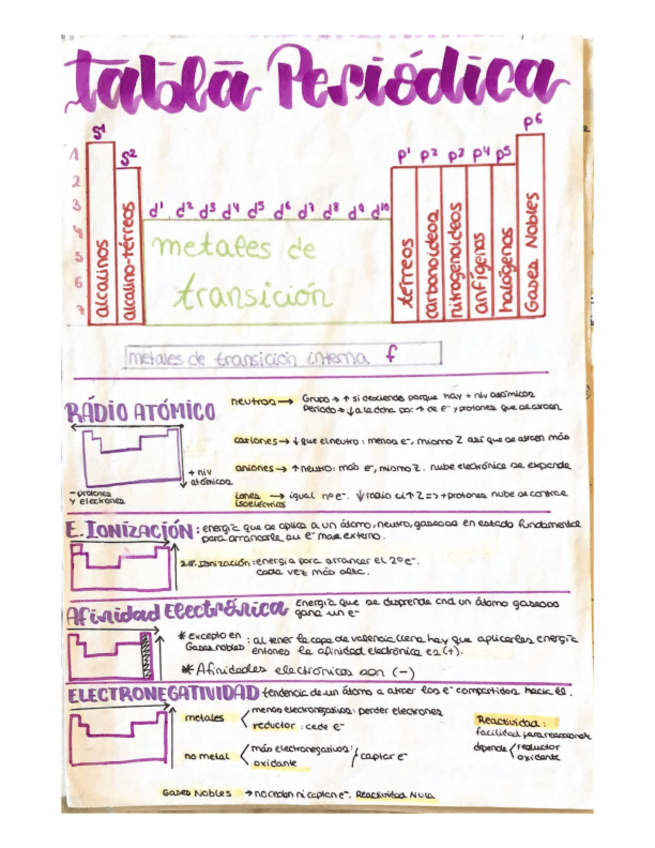 tabla Periódica
s¹
s²
p¹ p² p³ p⁴ p⁵ p⁶
1
2
3
4
5
6
7
d¹ d² d³ d⁴ d⁵ d⁶ d⁷ d⁸ d⁹ d¹⁰
alcalinos
alcalino-térreos
metales de
transición
térreos
carbonoideos
nitrogenoideos
anfígenos
halógenos
Gases Nobles
metales de transición interna f
RADIO ATÓMICO
neutros → Grupo → ↑ si desciende porque hay + niv atómicos
Periodo → ↓ a la dcha por: → de e⁻ y protones que se atraen
cationes → ↓ que el neutro: menos e⁻, mismo Z así que se atraen más
aniones → ↑ neutro: más e⁻, mismo Z. nube electrónica se expande
iones isoeléctricos → igual nº e⁻. ↓ radio si ↑ Z => + protones nube se contrae
+ niv
atómicos
- protones
y electrones
E. IONIZACIÓN: energía que se aplica a un átomo, neutro, gaseoso en estado fundamental
para arrancarle su e⁻ más externo.
2ª E. Ionización: energía para arrancar el 2º e⁻.
cada vez más alta.
Afinidad Electrónica Energía que se desprende cnd un átomo gaseoso
gana un e⁻
* Excepto en Gases nobles: al tener la capa de valencia llena hay que aplicarles energía
entonces la afinidad electrónica es (+).
* Afinidades electrónicas son (-)
ELECTRONEGATIVIDAD tendencia de un átomo a atraer los e⁻ compartidos hacia él.
metales
menos electronegativos: perder electrones
reductor: cede e⁻
no metal
más electronegativos:
oxidante
captar e⁻
Reactividad:
facilidad para reaccionar
depende reductor
oxidante
Gases Nobles → no ceden ni captan e⁻. Reactividad Nula